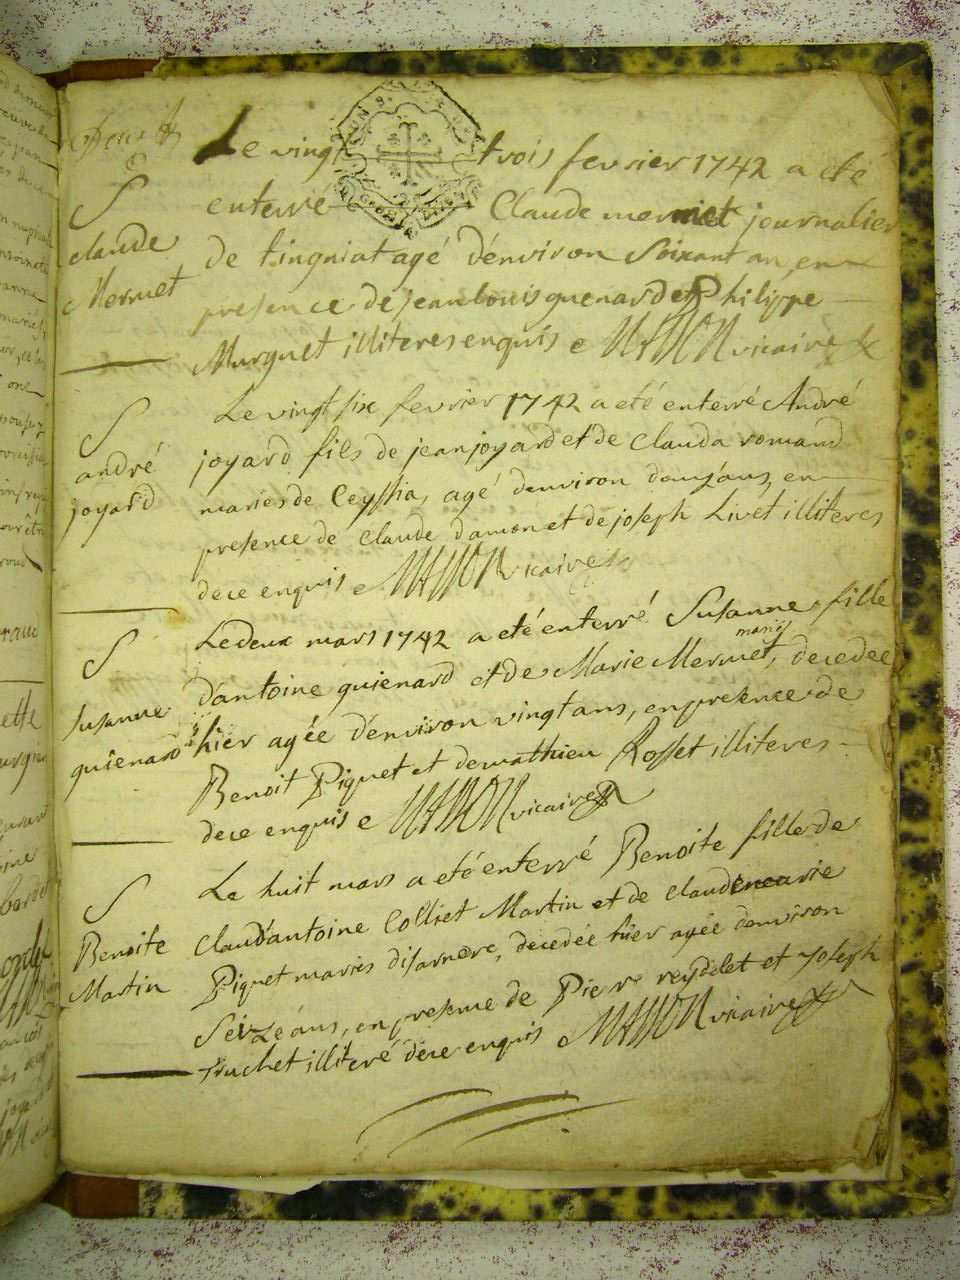 Le vingt trois fevrier 1742 a eté
enterré Claude mermet journalier
de tingniat agé d'environ Soixant an, en
presence de jean louis guenard et Philippe
Murguet illiteres enquis e MASSON vicaire
S
claude
Mermet
Le vingt six fevrier 1742 a eté enterré André
joyard fils de jean joyard et de Clauda romand
mariés de Ceyssia, agé d'environ douz'ans, en
presence de Claude damon et de joseph Livet illiteres
dece enquis e MASSON vicaire
S
andré
joyard
Le deux mars 1742 a eté enterré Susanne fille
d'antoine guienard et de Marie Mermet mariés, decedee
hier agée d'environ vingt ans, en presence de
Benoit Piquet et de mathieu Rosset illiteres
dece enquis e MASSON vicaire
S
susanne
guienard
Le huit mars a eté enterré Benoite fille de
Claud'antoine Colliet Martin et de claudemarie
Piquet mariés disarnore, decedée hier agée d'environ
Seizeans, en presence de Pierre reydelet et Joseph
truchet illiteré dece enquis MASSON vicaire
S
Benoite
Martin